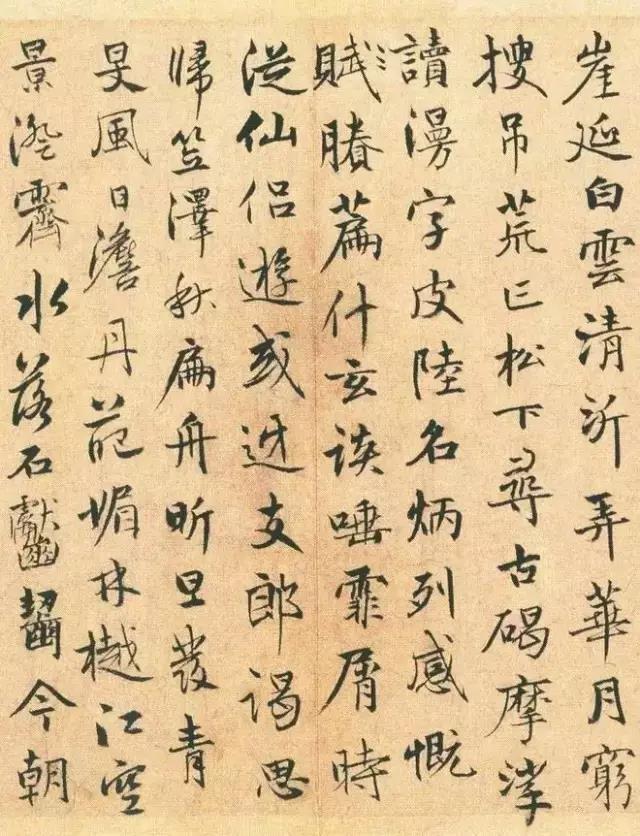 崖延白雲清沂弄華月窮
搜吊荒亡松下尋古碣摩挲
讀漫字皮陸名炳列感慨
賦賸篇什玄談唾霏屑時
從仙侣遊或迓支郎謁思
歸笠澤秋扁舟昕旦發青
旻風日澹丹葩媚林樾江空
景澄霽水落石齾齧今朝